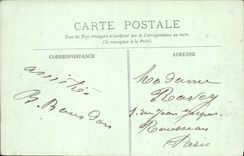 CARTE POSTALE
Tous les Pays étrangers n'acceptent pas la Correspondance au recto
(Se renseigner à la Poste)
CORRESPONDANCE
ADRESSE
amitiés
Madame
Jean Jacques
Rousseau
Paris